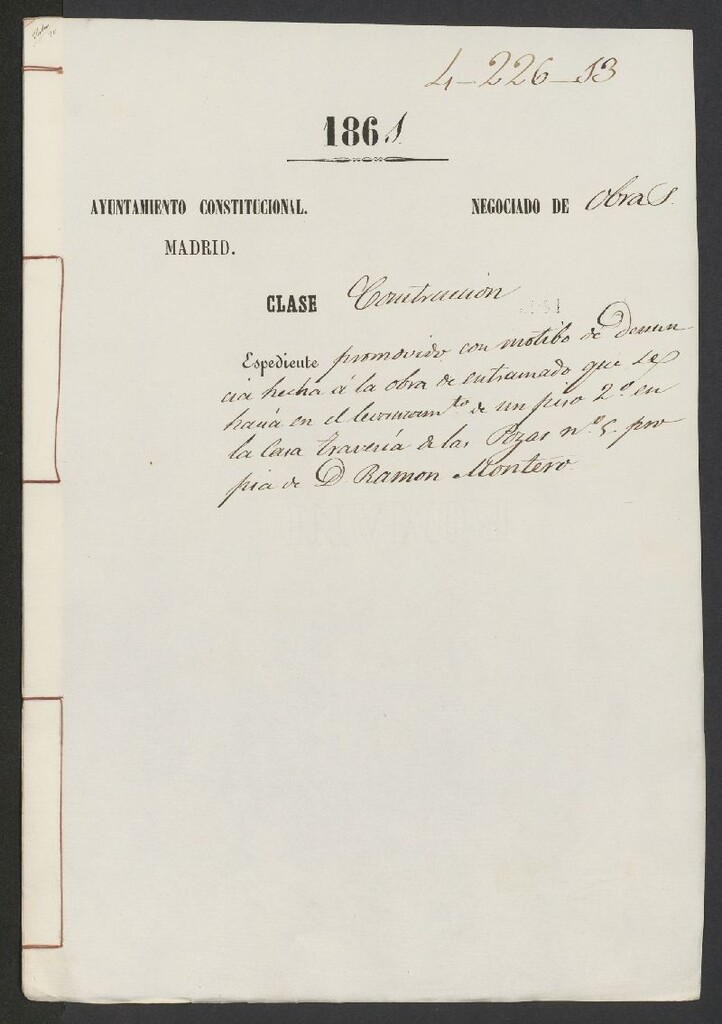 4-226-53
1861
AYUNTAMIENTO CONSTITUCIONAL.
MADRID.
NEGOCIADO DE Obras.
CLASE Contrucción
Espediente promovido con motibo de Denun
cia hecha á la obra de entramado que se
hacía en el levantam.to de un piso 2.º en
la Casa travesía de las Pozas nº 5. pro
pia de D Ramon Montero